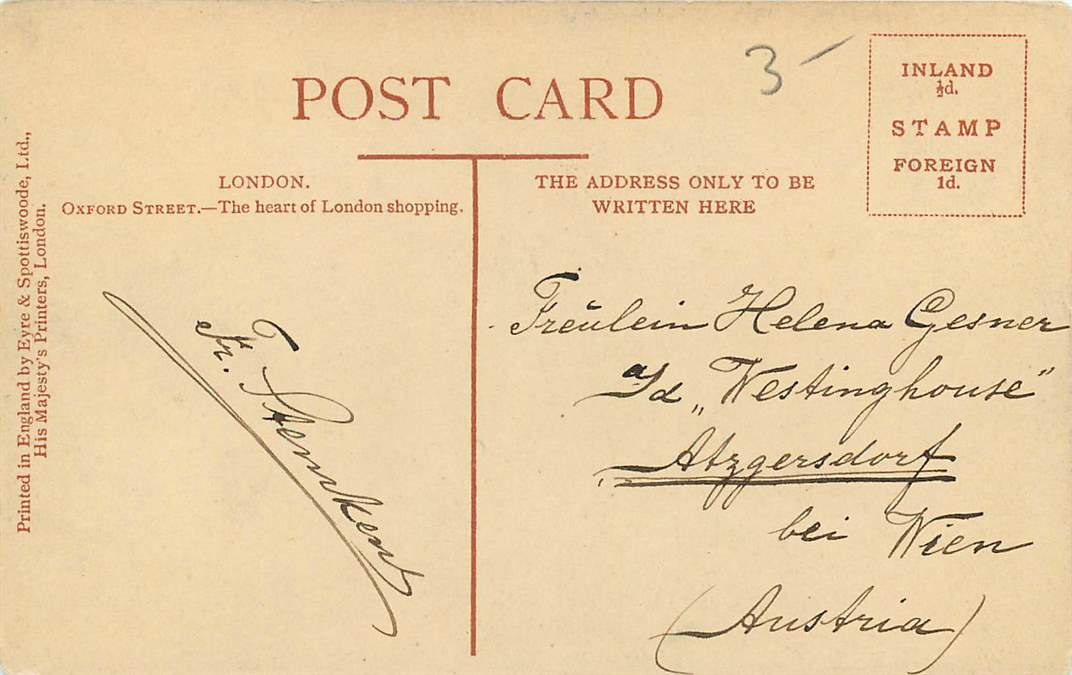 POST CARD
3 —
INLAND
½d.
STAMP
FOREIGN
1d.
LONDON.
OXFORD STREET.—The heart of London shopping.
THE ADDRESS ONLY TO BE
WRITTEN HERE
Printed in England by Eyre & Spottiswoode, Ltd.,
His Majesty's Printers, London.
Fr.
Fräulein Helena Gesner
„Westinghouse"
Atzgersdorf
bei Wien
(Austria)